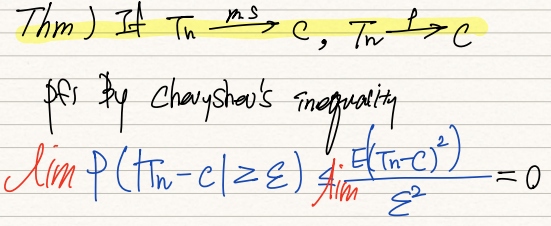 Thm) If Tn ms→ C, Tn p→ C
pf: By Chevyshev's inequality
lim P(|Tn-c| ≥ ε) ≤ lim E((Tn-c)²)/ε² = 0